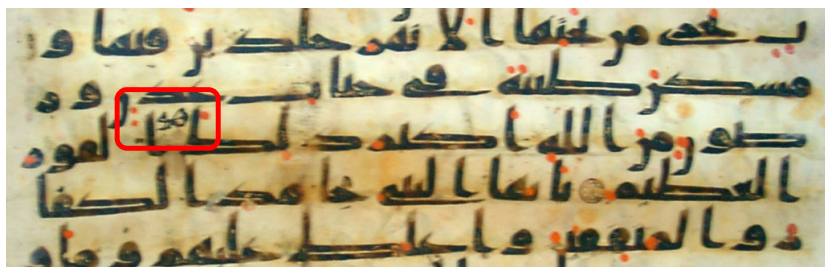 تجري من تحتها الانهر خلدين فيها و
مسكن طيبة في جنت عدن و ر
ضون من الله اكبر ذلك هو الفوز
العظيم يايها النبي جهد الكفا
ر و المنفقين واغلظ عليهم وماو